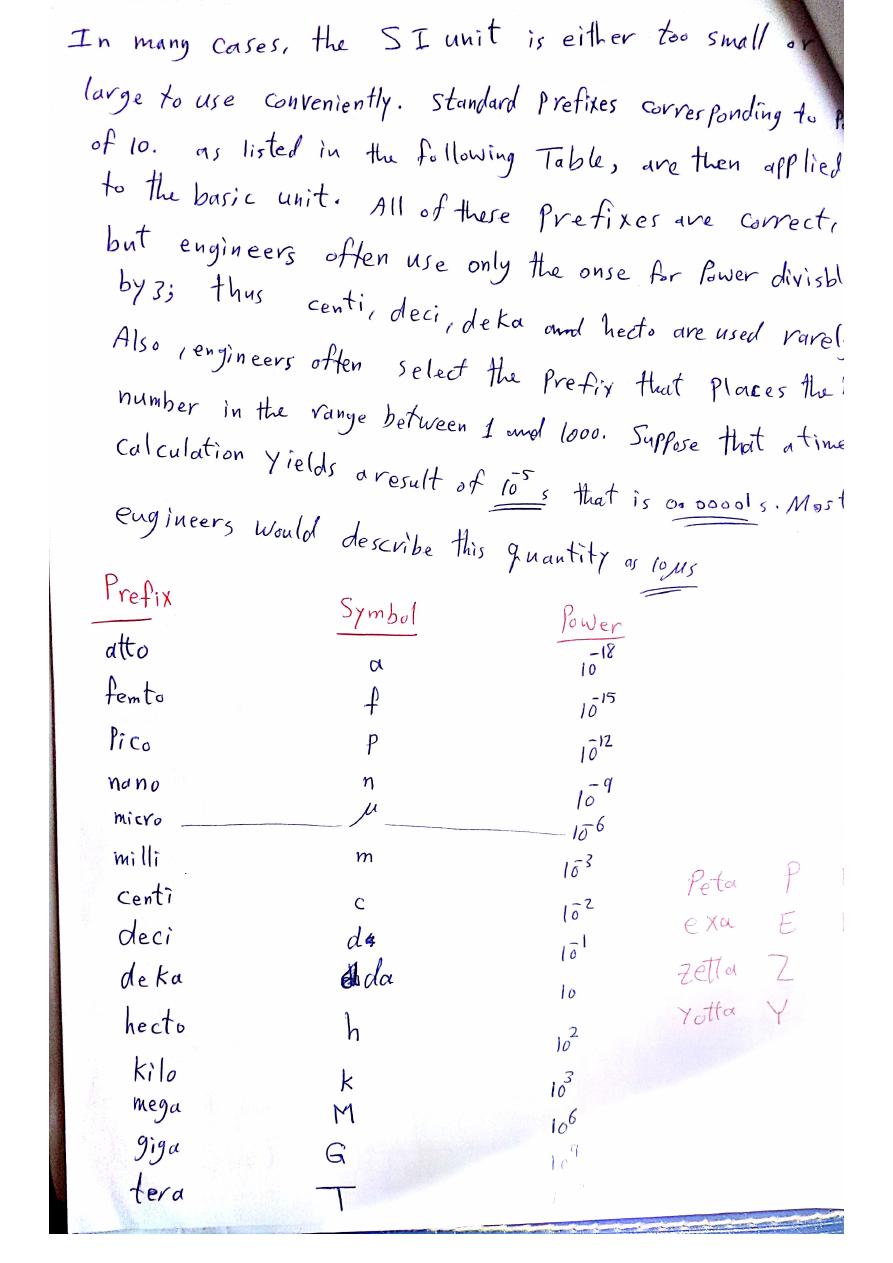 In many cases, the SI unit is either too small or
large to use conveniently. Standard Prefixes corresponding to
of 10. as listed in the following Table, are then applied
to the basic unit. All of these Prefixes are correct,
but engineers often use only the onse for Power divisbl
by 3; thus centi, deci, deka and hecto are used rarel
Also, engineers often select the Prefix that places the
number in the range between 1 and 1000. Suppose that a time
Calculation Yields a result of 10⁻⁵ s that is 0.00001 s. Most
engineers would describe this quantity as 10 μs
Prefix Symbol Power
atto a 10⁻¹⁸
femto f 10⁻¹⁵
Pico P 10⁻¹²
nano n 10⁻⁹
micro μ 10⁻⁶
milli m 10⁻³
centi c 10⁻²
deci d 10⁻¹
deka da 10
hecto h 10²
kilo k 10³
mega M 10⁶
giga G 10⁹
tera T
Peta P
exa E
zetta Z
Yotta Y